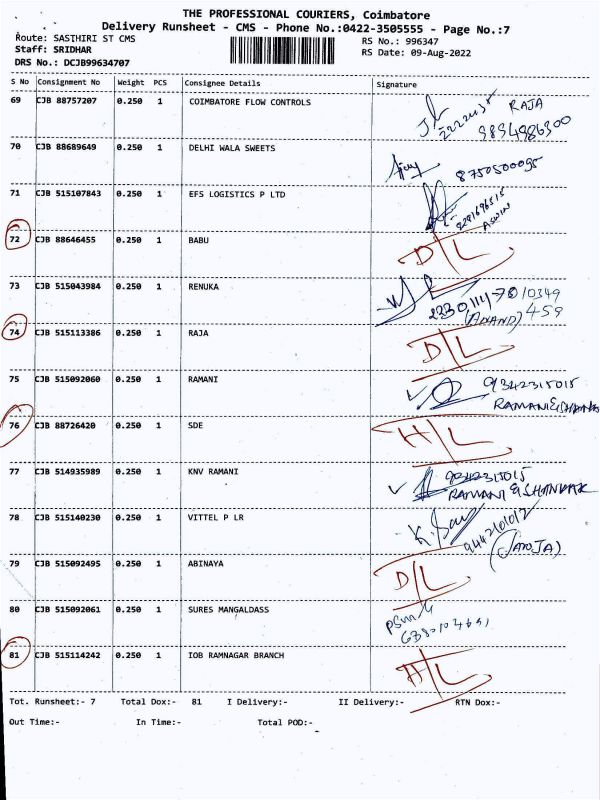 THE PROFESSIONAL COURIERS, Coimbatore
Delivery Runsheet - CMS - Phone No.:0422-3505555 - Page No.:7
Route: SASTHIRI ST CMS RS No.: 996347
Staff: SRIDHAR RS Date: 09-Aug-2022
DRS No.: DCJB99634707
S No Consignment No Weight PCS Consignee Details Signature
69 CJB 88757207 0.250 1 COIMBATORE FLOW CONTROLS RAJA
9894986300
70 CJB 88689649 0.250 1 DELHI WALA SWEETS 8750500095
71 CJB 515107843 0.250 1 EFS LOGISTICS P LTD
ASWIN
72 CJB 88646455 0.250 1 BABU D/L
73 CJB 515043984 0.250 1 RENUKA
(ANAND) 459
74 CJB 515113386 0.250 1 RAJA D/L
75 CJB 515092060 0.250 1 RAMANI 9342315015
76 CJB 88726420 0.250 1 SDE H/L
77 CJB 514935989 0.250 1 KNV RAMANI 9342315015
RAMANI & SHANKAR
78 CJB 515140230 0.250 1 VITTEL P LR
79 CJB 515092495 0.250 1 ABINAYA D/L
80 CJB 515092061 0.250 1 SURES MANGALDASS
81 CJB 515114242 0.250 1 IOB RAMNAGAR BRANCH H/L
Tot. Runsheet:- 7 Total Dox:- 81 I Delivery:- II Delivery:- RTN Dox:-
Out Time:- In Time:- Total POD:-